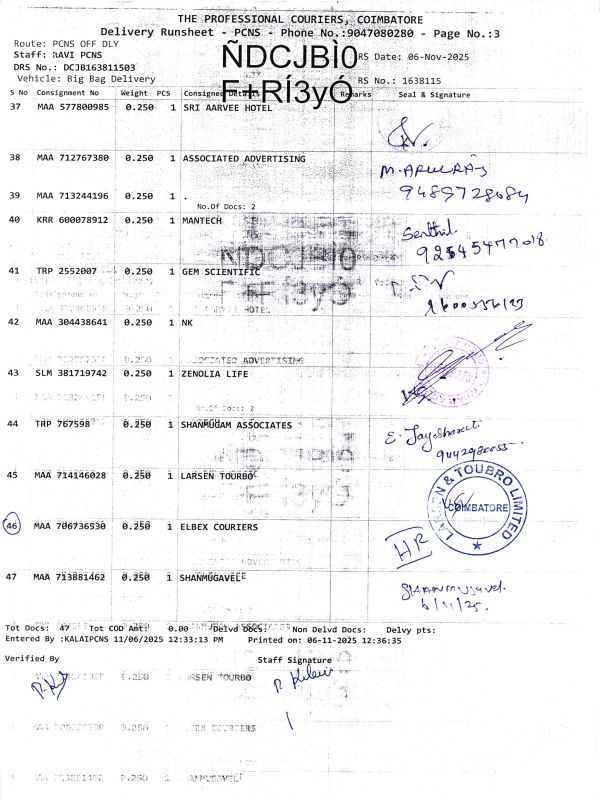 THE PROFESSIONAL COURIERS, COIMBATORE
Delivery Runsheet - PCNS - Phone No.:9047080280 - Page No.:3
Route: PCNS OFF DLY
Staff: RAVI PCNS
DRS No.: DCJB163811503
Vehicle: Big Bag Delivery
ÑDCJBÌ0
F+RÍ3yÓ
RS Date: 06-Nov-2025
RS No.: 1638115
S No Consignment No Weight PCS Consignee Details Remarks Seal & Signature
37 MAA 577800985 0.250 1 SRI AARVEE HOTEL
38 MAA 712767380 0.250 1 ASSOCIATED ADVERTISING
M. ARULRAJ
9489728684
39 MAA 713244196 0.250 1 .
No.Of Docs: 2
40 KRR 600078912 0.250 1 MANTECH
Senthil
41 TRP 2552007 0.250 1 GEM SCIENTIFIC
42 MAA 304438641 0.250 1 NK
43 SLM 381719742 0.250 1 ZENOLIA LIFE
44 TRP 767598 0.250 1 SHANMUGAM ASSOCIATES
E. Jayabharati
9442980055
45 MAA 714146028 0.250 1 LARSEN TOURBO
LARSEN & TOUBRO LIMITED
COIMBATORE
46 MAA 706736530 0.250 1 ELBEX COURIERS
HR
47 MAA 713881462 0.250 1 SHANMUGAVEL
Shanmugavel
6/11/25.
Tot Docs: 47 Tot COD Amt: 0.00 Delvd Docs: Non Delvd Docs: Delvy pts:
Entered By :KALAIPCNS 11/06/2025 12:33:13 PM Printed on: 06-11-2025 12:36:35
Verified By Staff Signature